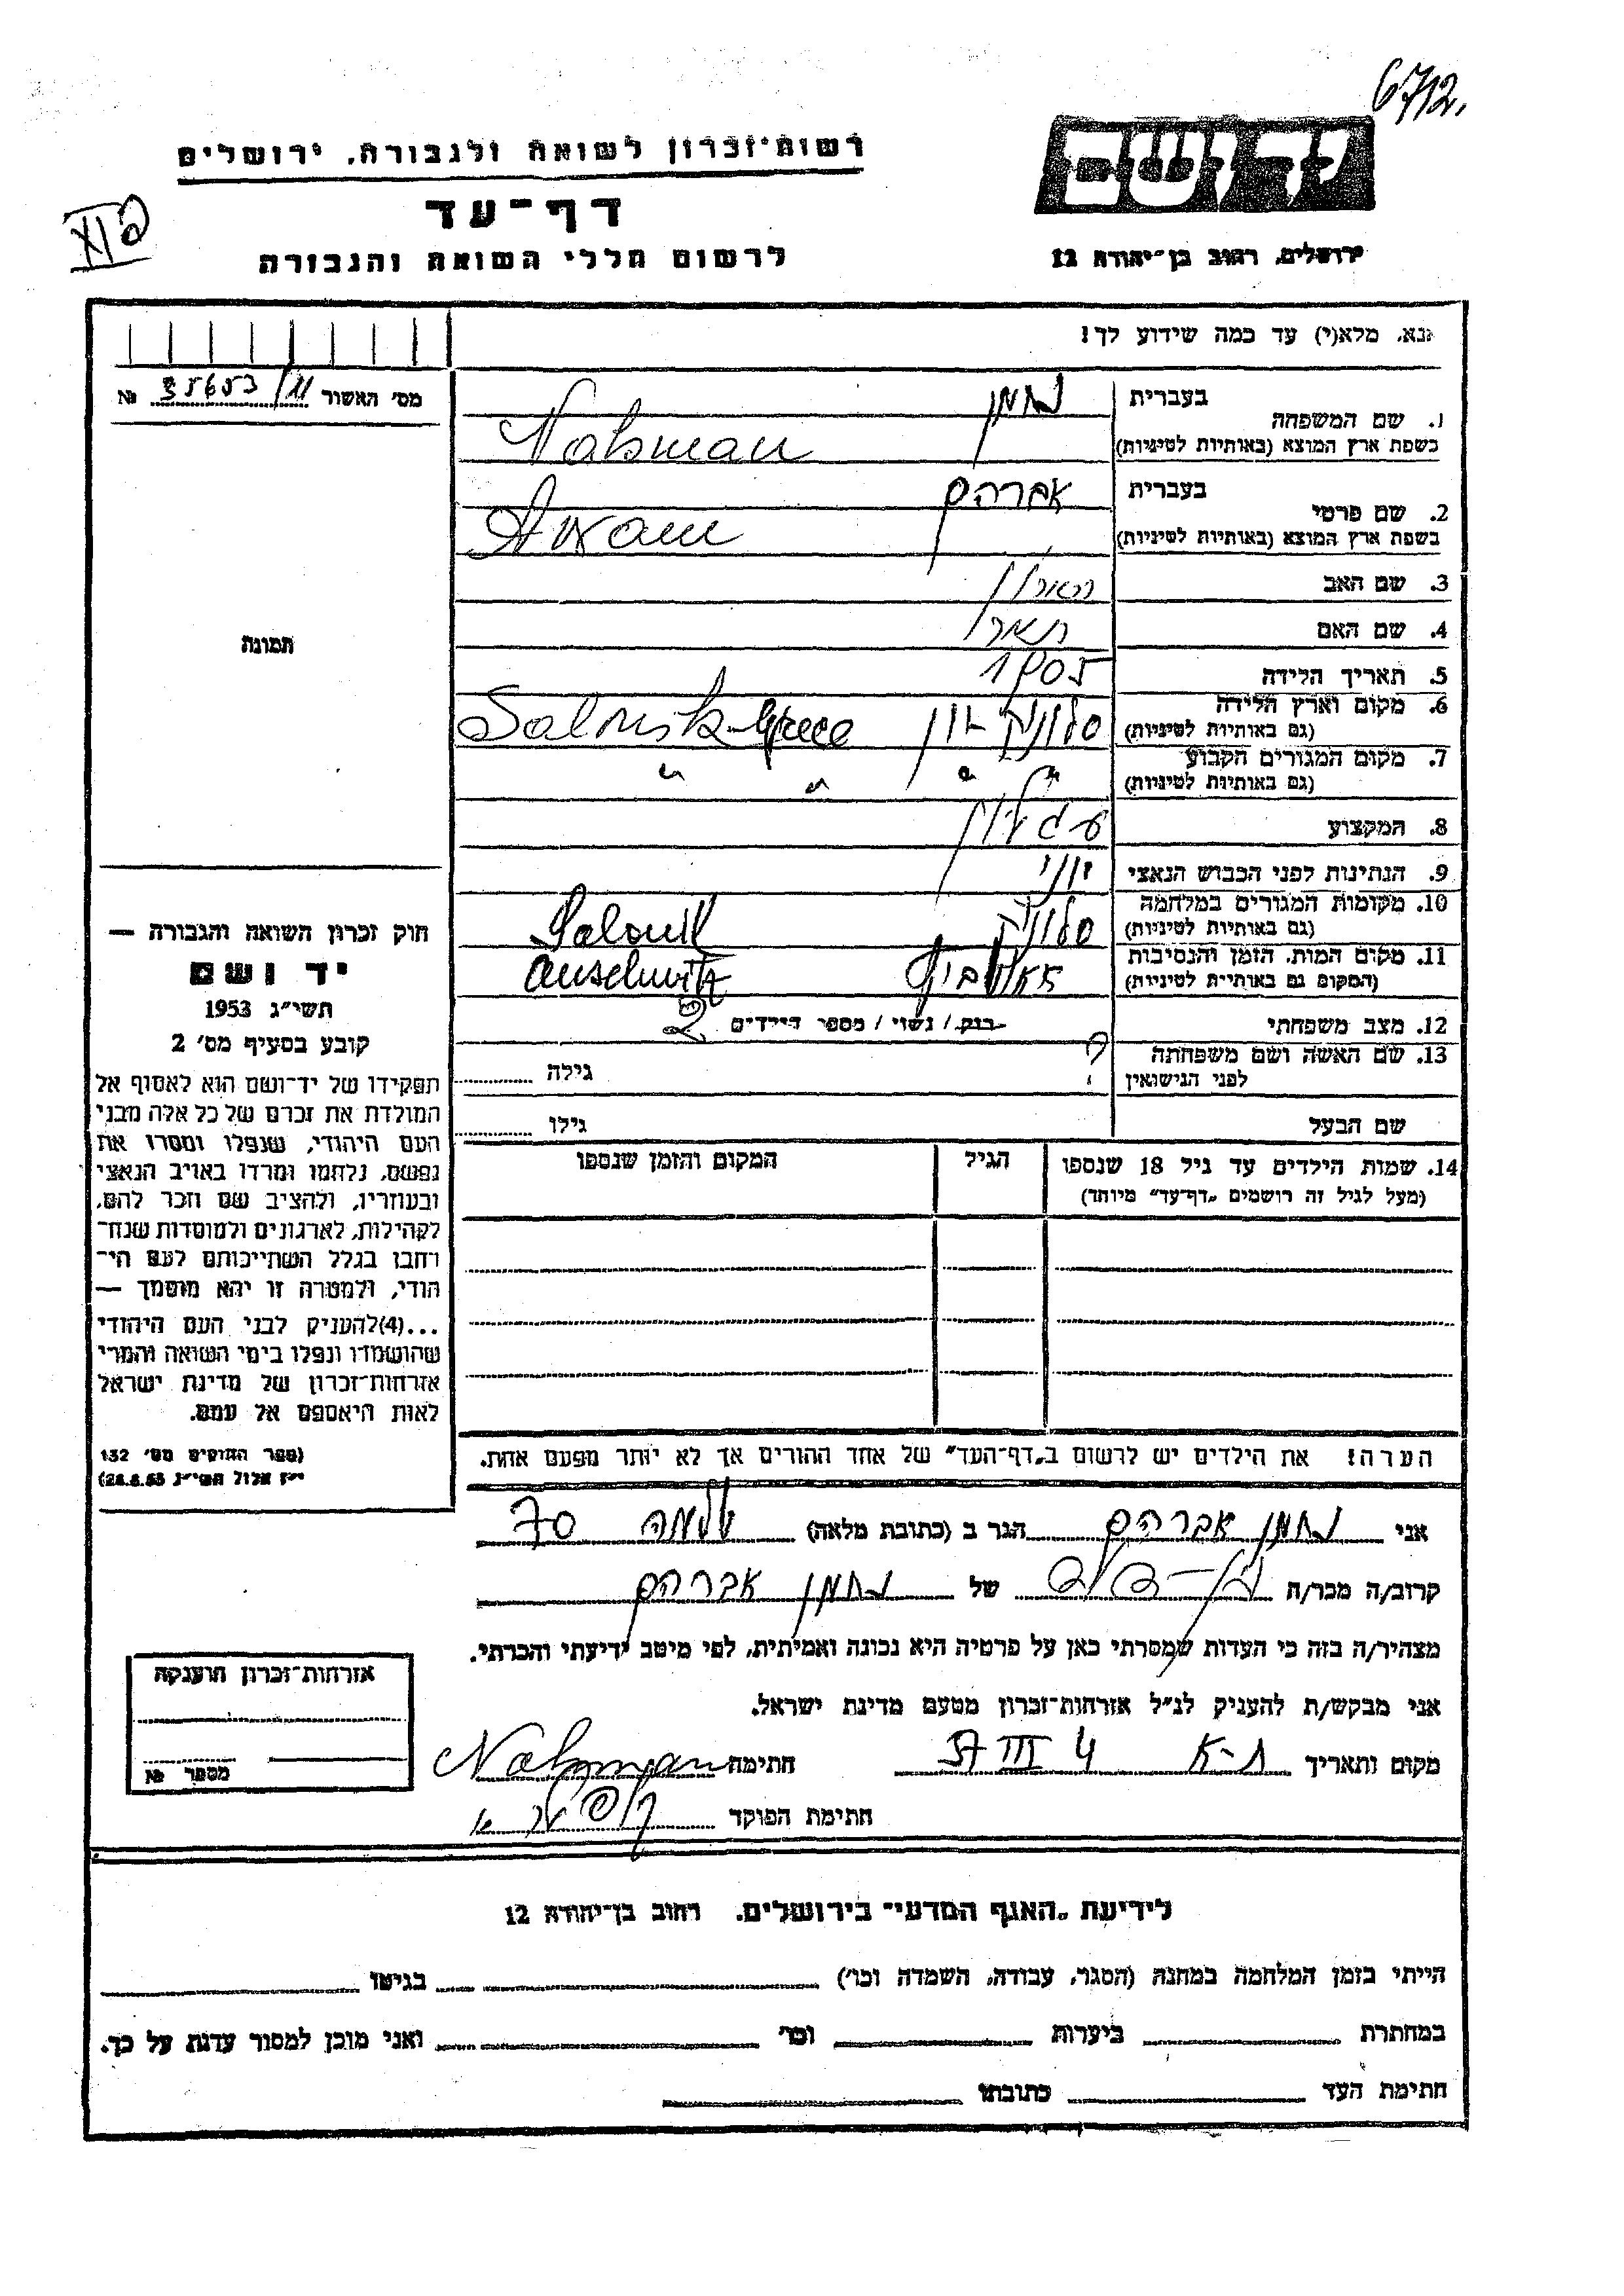 6712.
יד ושם
רשות־זכרון לשואה ולגבורה, ירושלים
דף־עד
לרשום חללי השואה והגבורה
ירושלים, רחוב בן־יהודה 12
נא, מלא(י) עד כמה שידוע לך!
מס' האשור 35653/11 №
תמונה
1. שם המשפחה
בעברית נחמן
בשפת ארץ המוצא (באותיות לטיניות) Nahman
2. שם פרטי
בעברית אברהם
בשפת ארץ המוצא (באותיות לטיניות) Awam
3. שם האב
4. שם האם
5. תאריך הלידה 1905
6. מקום וארץ הלידה סלוניקי יוון
(גם באותיות לטיניות) Salonik-Greece
7. מקום המגורים הקבוע " " " "
(גם באותיות לטיניות)
8. המקצוע
9. הנתינות לפני הכבוש הנאצי יווני
10. מקומות המגורים במלחמה סלוניקי
(גם באותיות לטיניות) Salonik
11. מקום המות, הזמן והנסיבות אאושביץ
(המקום גם באותיות לטיניות) Auschwitz
12. מצב משפחתי רווק / נשוי / מספר הילדים 2
13. שם האשה ושם משפחתה ?
לפני הנישואין
גילה
שם הבעל
גילו
14. שמות הילדים עד גיל 18 שנספו
(מעל לגיל זה רושמים „דף־עד" מיוחד)
הגיל
המקום והזמן שנספו
חוק זכרון השואה והגבורה —
יד ושם
תשי״ג 1953
קובע בסעיף מס' 2
תפקידו של יד־ושם הוא לאסוף אל
המולדת את זכרם של כל אלה מבני
העם היהודי, שנפלו ומסרו את
נפשם, נלחמו ומרדו באויב הנאצי
ובעוזריו, ולהציב שם וזכר להם,
לקהילות, לארגונים ולמוסדות שנח־
רבו בגלל השתייכותם לעם הי־
הודי, ולמטרה זו יהא מוסמך —
...(4)להעניק לבני העם היהודי
שהושמדו ונפלו בימי השואה והמרי
אזרחות־זכרון של מדינת ישראל
לאות היאספם אל עמם.
(ספר החוקים מס' 132
י״ז אלול תשי״ג 28.8.53)
הערה! את הילדים יש לרשום ב„דף־העד" של אחד ההורים אך לא יותר מפעם אחת.
אני נחמן אברהם הגר ב (כתובת מלאה) שלמה 70
קרוב/ה מכר/ה בן-דוד של נחמן אברהם
מצהיר/ה בזה כי העדות שמסרתי כאן על פרטיה היא נכונה ואמיתית, לפי מיטב ידיעתי והכרתי.
אני מבקש/ת להעניק לנ״ל אזרחות־זכרון מטעם מדינת ישראל.
מקום ותאריך ת-א 4 III 57 חתימה Nahman
חתימת הפוקד
אזרחות־זכרון הוענקה
מספר №
לידיעת „האגף המדעי" בירושלים, רחוב בן־יהודה 12
הייתי בזמן המלחמה במחנה (הסגר, עבודה, השמדה וכו') בגיטו
במחתרת ביערות וכו' ואני מוכן למסור עדות על כך.
חתימת העד כתובתו